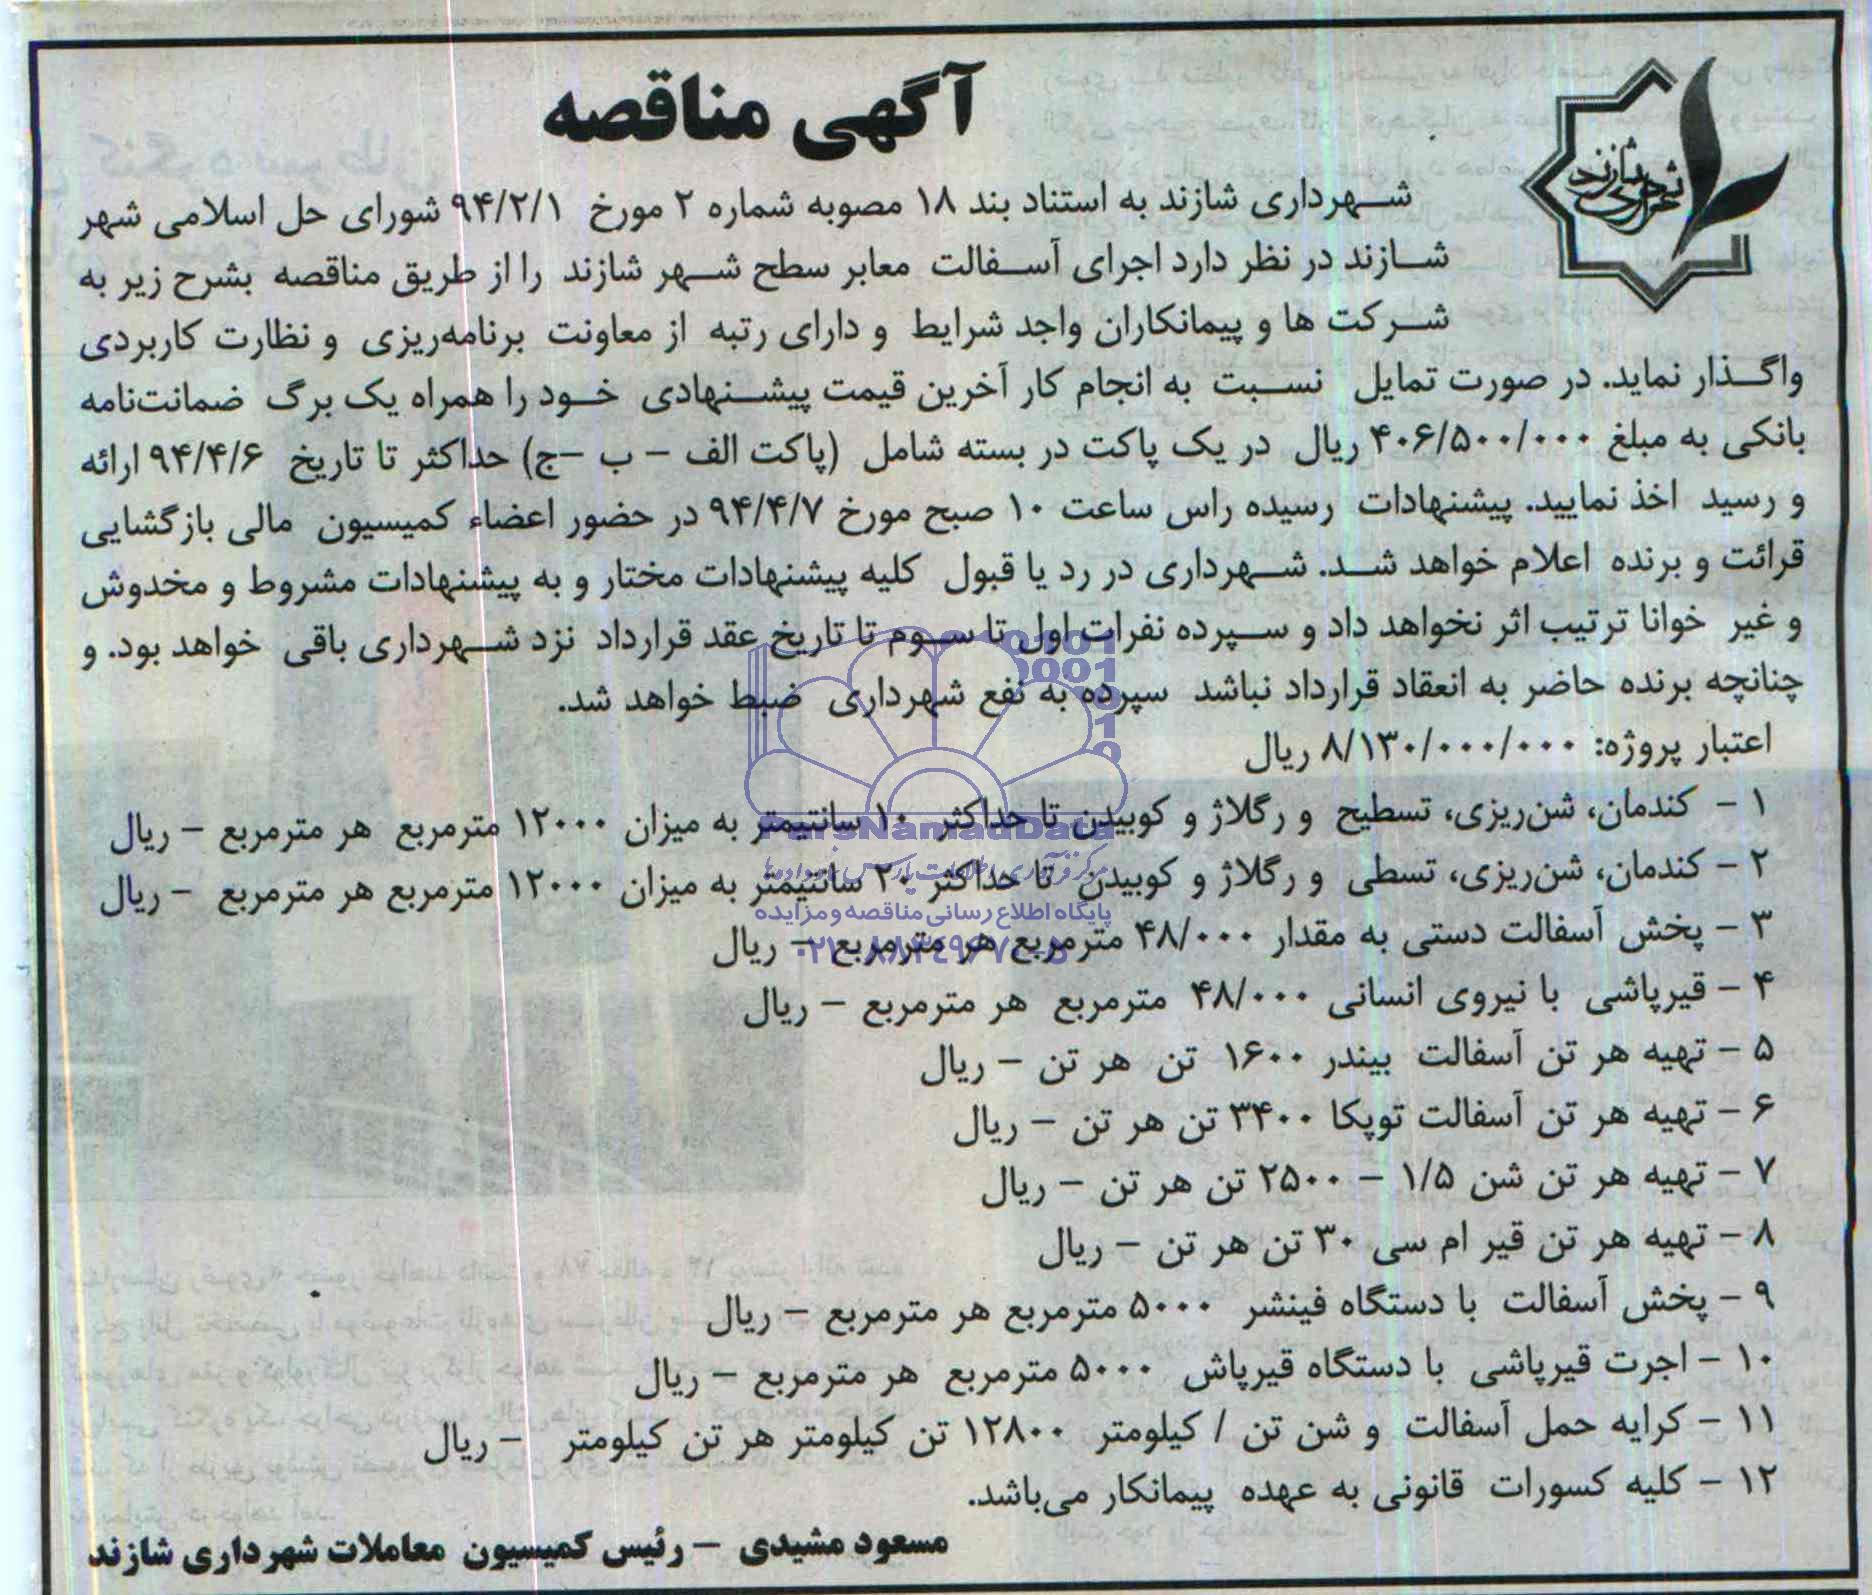 آگهی مناقصه
شهرداری شازند
شهرداری شازند به استناد بند ۱۸ مصوبه شماره ۲ مورخ ۹۴/۲/۱ شورای حل اسلامی شهر
شازند در نظر دارد اجرای آسفالت معابر سطح شهر شازند را از طریق مناقصه بشرح زیر به
شرکت ها و پیمانکاران واجد شرایط و دارای رتبه از معاونت برنامه‌ریزی و نظارت کاربردی
واگذار نماید. در صورت تمایل نسبت به انجام کار آخرین قیمت پیشنهادی خود را همراه یک برگ ضمانت‌نامه
بانکی به مبلغ ۴۰۶/۵۰۰/۰۰۰ ریال در یک پاکت در بسته شامل (پاکت الف – ب –ج) حداکثر تا تاریخ ۹۴/۴/۶ ارائه
و رسید اخذ نمایید. پیشنهادات رسیده راس ساعت ۱۰ صبح مورخ ۹۴/۴/۷ در حضور اعضاء کمیسیون مالی بازگشایی
قرائت و برنده اعلام خواهد شد. شهرداری در رد یا قبول کلیه پیشنهادات مختار و به پیشنهادات مشروط و مخدوش
و غیر خوانا ترتیب اثر نخواهد داد و سپرده نفرات اول تا سوم تا تاریخ عقد قرارداد نزد شهرداری باقی خواهد بود. و
چنانچه برنده حاضر به انعقاد قرارداد نباشد سپرده به نفع شهرداری ضبط خواهد شد.
اعتبار پروژه: ۸/۱۳۰/۰۰۰/۰۰۰ ریال
۱ – کندمان، شن‌ریزی، تسطیح و رگلاژ و کوبیدن تا حداکثر ۱۰ سانتیمتر به میزان ۱۲۰۰۰ مترمربع هر مترمربع – ریال
۲ – کندمان، شن‌ریزی، تسطی و رگلاژ و کوبیدن تا حداکثر ۲۰ سانتیمتر به میزان ۱۲۰۰۰ مترمربع هر مترمربع – ریال
۳ – پخش آسفالت دستی به مقدار ۴۸/۰۰۰ مترمربع هر مترمربع – ریال
۴ – قیرپاشی با نیروی انسانی ۴۸/۰۰۰ مترمربع هر مترمربع – ریال
۵ – تهیه هر تن آسفالت بیندر ۱۶۰۰ تن هر تن – ریال
۶ – تهیه هر تن آسفالت توپکا ۳۴۰۰ تن هر تن – ریال
۷ – تهیه هر تن شن ۱/۵ – ۲۵۰۰ تن هر تن – ریال
۸ – تهیه هر تن قیر ام سی ۳۰ تن هر تن – ریال
۹ – پخش آسفالت با دستگاه فینشر ۵۰۰۰ مترمربع هر مترمربع – ریال
۱۰ – اجرت قیرپاشی با دستگاه قیرپاش ۵۰۰۰ مترمربع هر مترمربع – ریال
۱۱ – کرایه حمل آسفالت و شن تن / کیلومتر ۱۲۸۰۰ تن کیلومتر هر تن کیلومتر – ریال
۱۲ – کلیه کسورات قانونی به عهده پیمانکار می‌باشد.
مسعود مشیدی – رئیس کمیسیون معاملات شهرداری شازند
ParsNamadData
پایگاه اطلاع رسانی مناقصه و مزایده